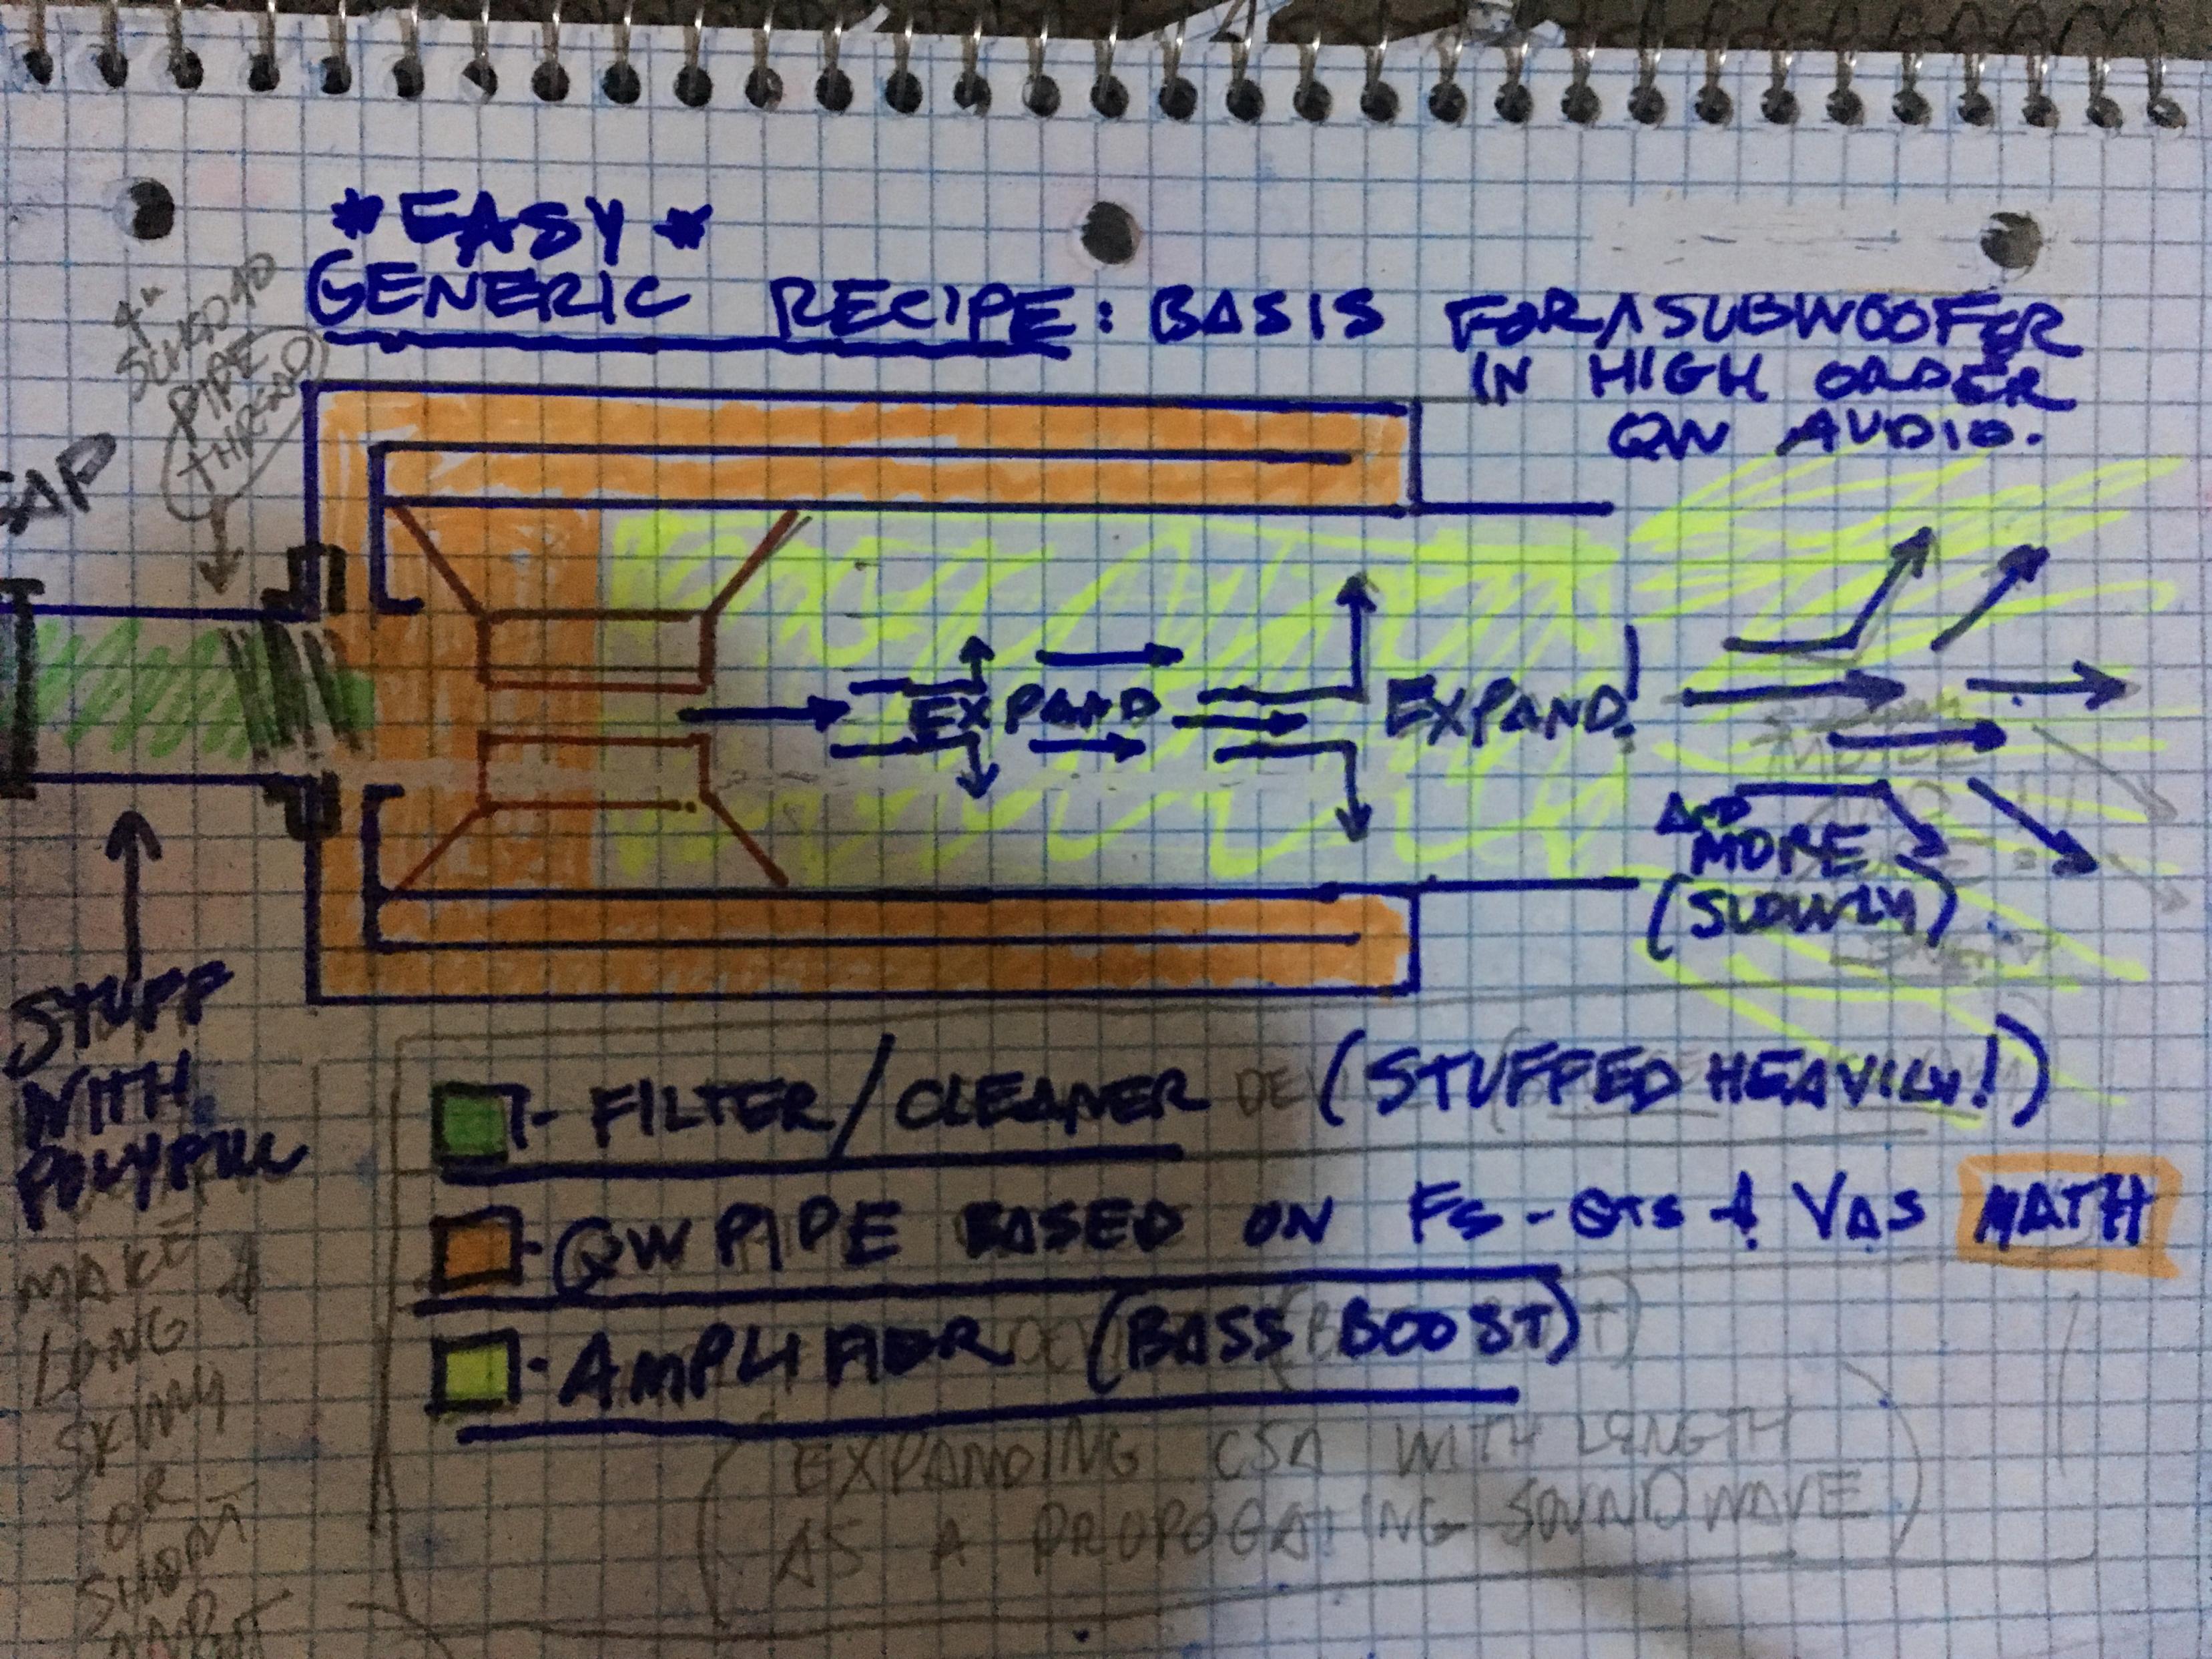 *EASY*
GENERIC RECIPE: BASIS FOR A SUBWOOFER
IN HIGH ORDER
QW AUDIO.
4"
SCHED 40
PIPE
THREAD
EXPAND
EXPAND!
AND
MORE
(SLOWLY)
STUFF
WITH
POLYFILL
MAKE
LONG &
SKINY
OR
SHORT
AND
- FILTER/CLEANER (STUFFED HEAVILY!)
- QW PIPE BASED ON FS - QTS & VAS MATH
- AMPLIFIER (BASS BOOST)
(EXPANDING CSA WITH LENGTH
AS A PROPOGATING SOUNDWAVE)